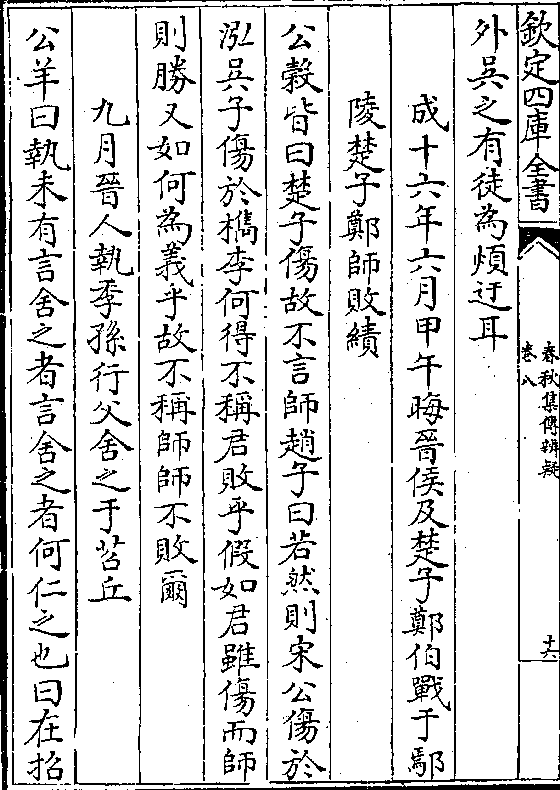 欽定四庫全書
春秋集傳辨疑
卷八
十六
外吳之有徒為煩迂耳
成十六年六月甲午晦晉侯及楚子鄭伯戰于鄢
陵楚子鄭師敗績
公穀皆曰楚子傷故不言師趙子曰若然則宋公傷於
泓吳子傷於檇李何得不稱君敗乎假如君雖傷而師
則勝又如何為義乎故不稱師師不敗爾
九月晉人執季孫行父舍之于苕丘
公羊曰執未有言舍之者言舍之者何仁之也曰在招